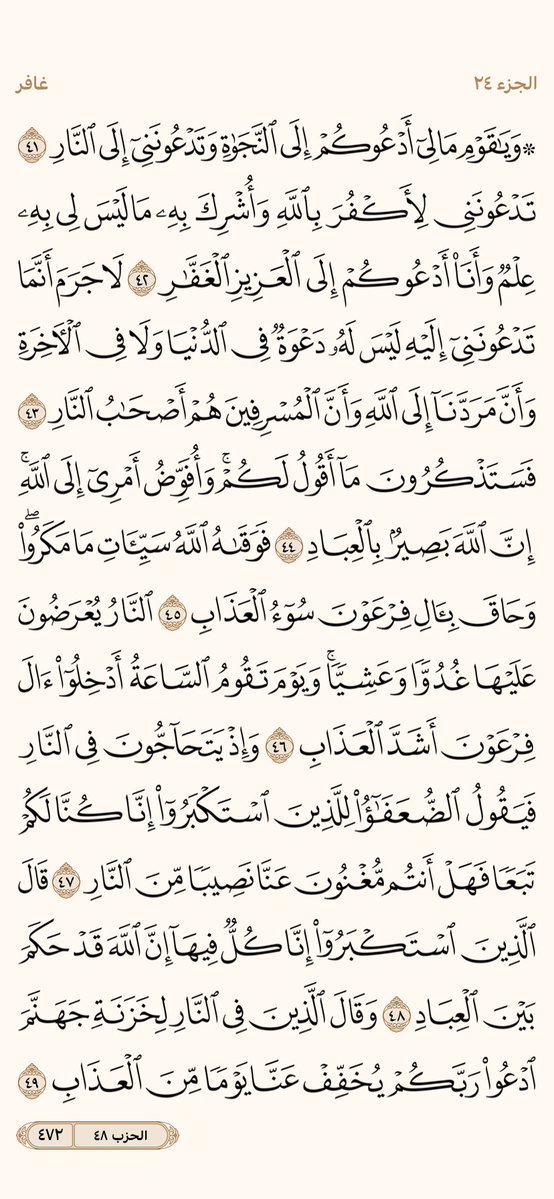 الجزء ٢٤ غافر
۞ وَيَٰقَوْمِ مَا لِيٓ أَدْعُوكُمْ إِلَى ٱلنَّجَوٰةِ وَتَدْعُونَنِيٓ إِلَى ٱلنَّارِ ٤١
تَدْعُونَنِي لِأَكْفُرَ بِٱللَّهِ وَأُشْرِكَ بِهِۦ مَا لَيْسَ لِي بِهِۦ
عِلْمٌ وَأَنَا۠ أَدْعُوكُمْ إِلَى ٱلْعَزِيزِ ٱلْغَفَّٰرِ ٤٢ لَا جَرَمَ أَنَّمَا
تَدْعُونَنِيٓ إِلَيْهِ لَيْسَ لَهُۥ دَعْوَةٌ فِي ٱلدُّنْيَا وَلَا فِي ٱلْأٓخِرَةِ
وَأَنَّ مَرَدَّنَآ إِلَى ٱللَّهِ وَأَنَّ ٱلْمُسْرِفِينَ هُمْ أَصْحَٰبُ ٱلنَّارِ ٤٣
فَسَتَذْكُرُونَ مَآ أَقُولُ لَكُمْۚ وَأُفَوِّضُ أَمْرِيٓ إِلَى ٱللَّهِۚ
إِنَّ ٱللَّهَ بَصِيرٌۢ بِٱلْعِبَادِ ٤٤ فَوَقَىٰهُ ٱللَّهُ سَيِّـَٔاتِ مَا مَكَرُوا۟ۖ
وَحَاقَ بِـَٔالِ فِرْعَوْنَ سُوٓءُ ٱلْعَذَابِ ٤٥ ٱلنَّارُ يُعْرَضُونَ
عَلَيْهَا غُدُوًّا وَعَشِيًّاۚ وَيَوْمَ تَقُومُ ٱلسَّاعَةُ أَدْخِلُوٓا۟ ءَالَ
فِرْعَوْنَ أَشَدَّ ٱلْعَذَابِ ٤٦ وَإِذْ يَتَحَآجُّونَ فِي ٱلنَّارِ
فَيَقُولُ ٱلضُّعَفَٰٓؤُا۟ لِلَّذِينَ ٱسْتَكْبَرُوٓا۟ إِنَّا كُنَّا لَكُمْ
تَبَعًا فَهَلْ أَنتُم مُّغْنُونَ عَنَّا نَصِيبًا مِّنَ ٱلنَّارِ ٤٧ قَالَ
ٱلَّذِينَ ٱسْتَكْبَرُوٓا۟ إِنَّا كُلٌّ فِيهَآ إِنَّ ٱللَّهَ قَدْ حَكَمَ
بَيْنَ ٱلْعِبَادِ ٤٨ وَقَالَ ٱلَّذِينَ فِي ٱلنَّارِ لِخَزَنَةِ جَهَنَّمَ
ٱدْعُوا۟ رَبَّكُمْ يُخَفِّفْ عَنَّا يَوْمًا مِّنَ ٱلْعَذَابِ ٤٩
الحزب ٤٨ ٤٧٢